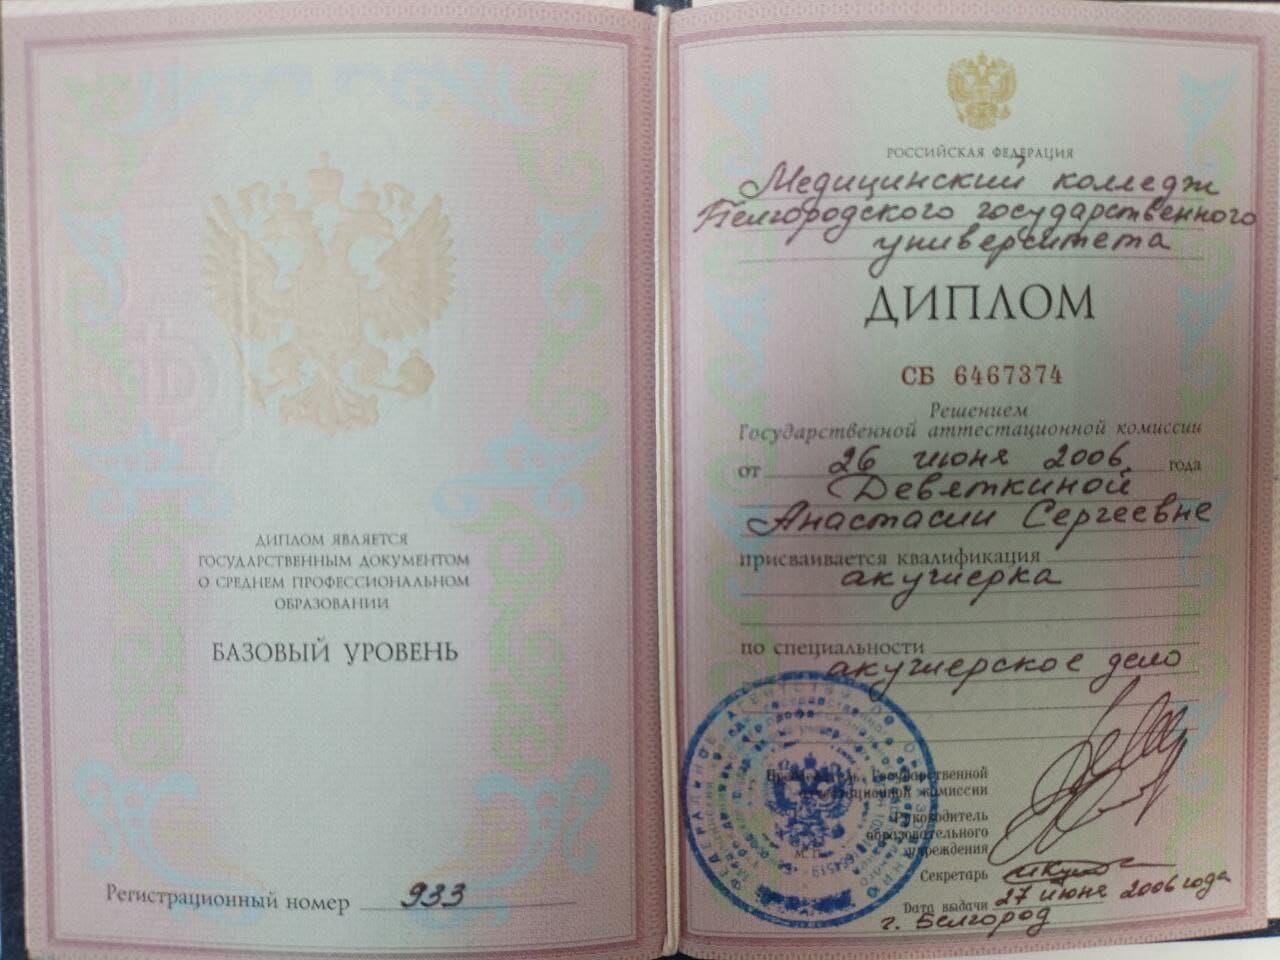 ДИПЛОМ ЯВЛЯЕТСЯ
ГОСУДАРСТВЕННЫМ ДОКУМЕНТОМ
О СРЕДНЕМ ПРОФЕССИОНАЛЬНОМ
ОБРАЗОВАНИИ
БАЗОВЫЙ УРОВЕНЬ
Регистрационный номер 933
РОССИЙСКАЯ ФЕДЕРАЦИЯ
Медицинский колледж
Белгородского государственного
университета
ДИПЛОМ
СБ 6467374
Решением
Государственной аттестационной комиссии
от 26 июня 2006 года
Девяткиной
Анастасии Сергеевне
присваивается квалификация
акушерка
по специальности
акушерское дело
Председатель Государственной
аттестационной комиссии
Руководитель
образовательного
учреждения
Секретарь
Дата выдачи 27 июня 2006 года
г. Белгород
М.П.